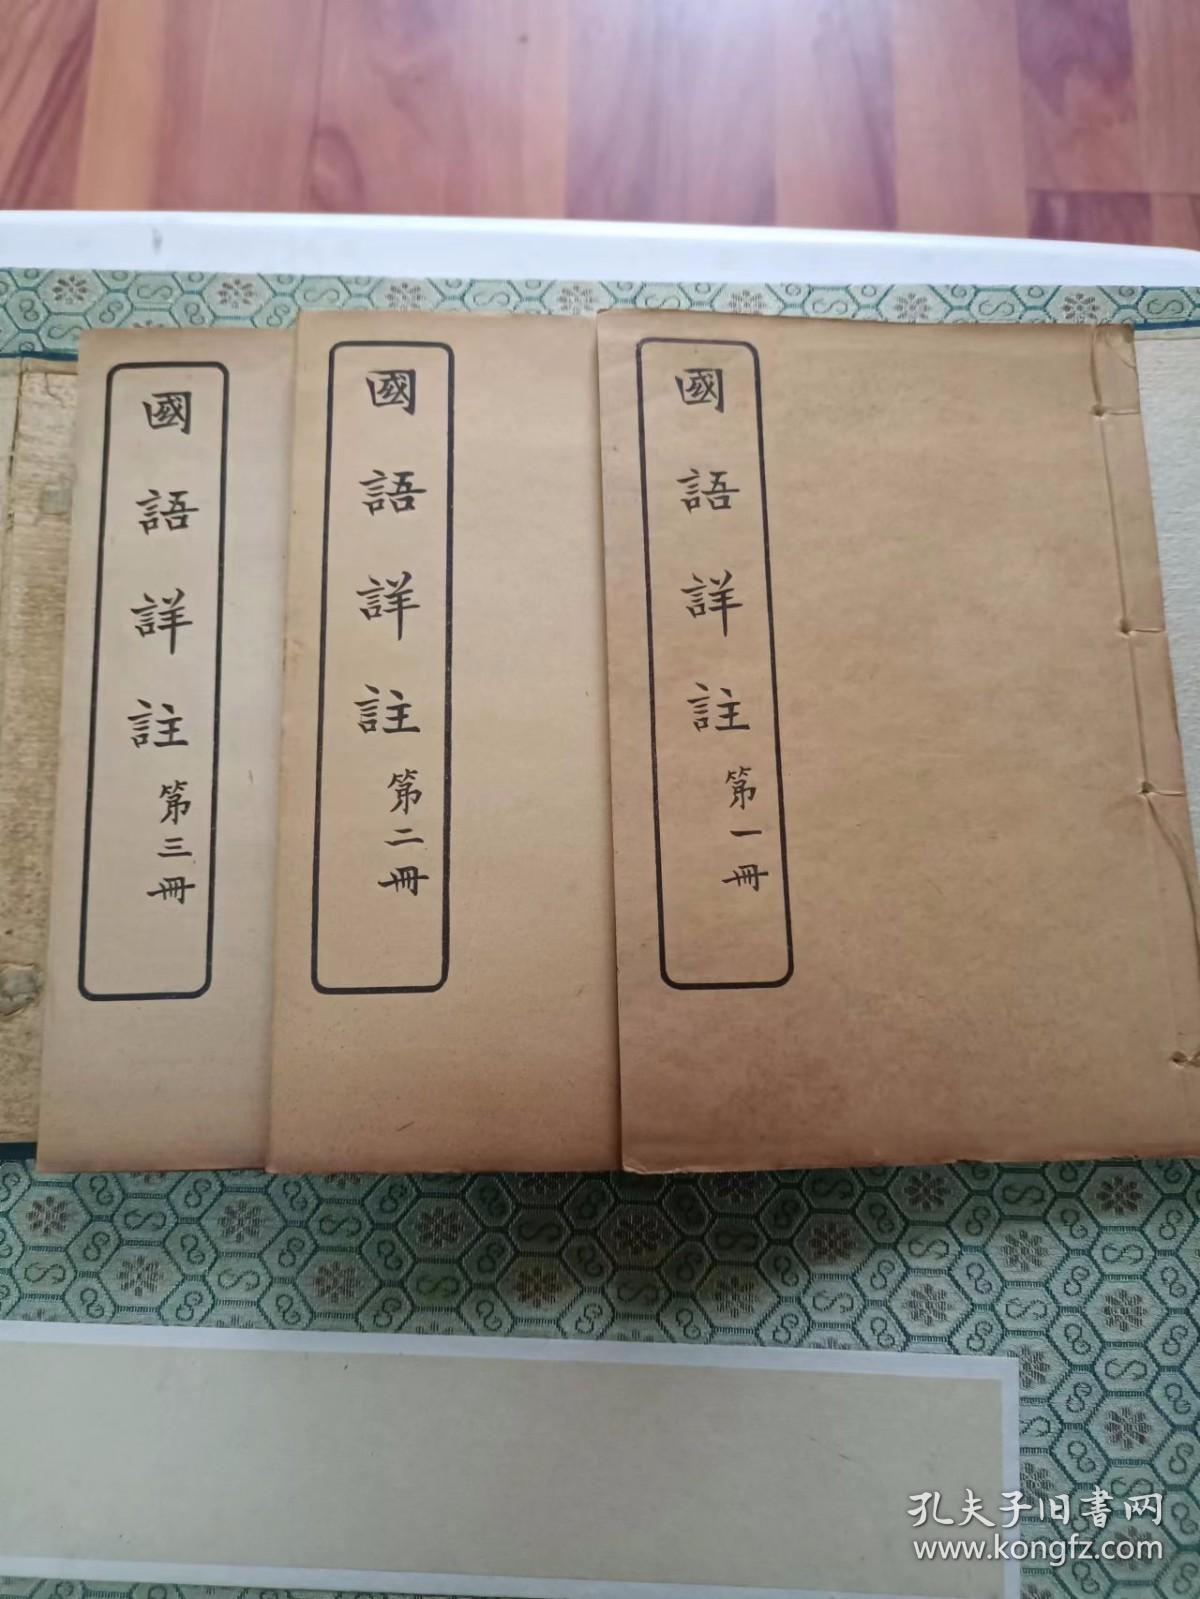 國語詳註
第一冊
國語詳註
第二冊
國語詳註
第三冊
孔夫子旧書网
www.kongfz.com